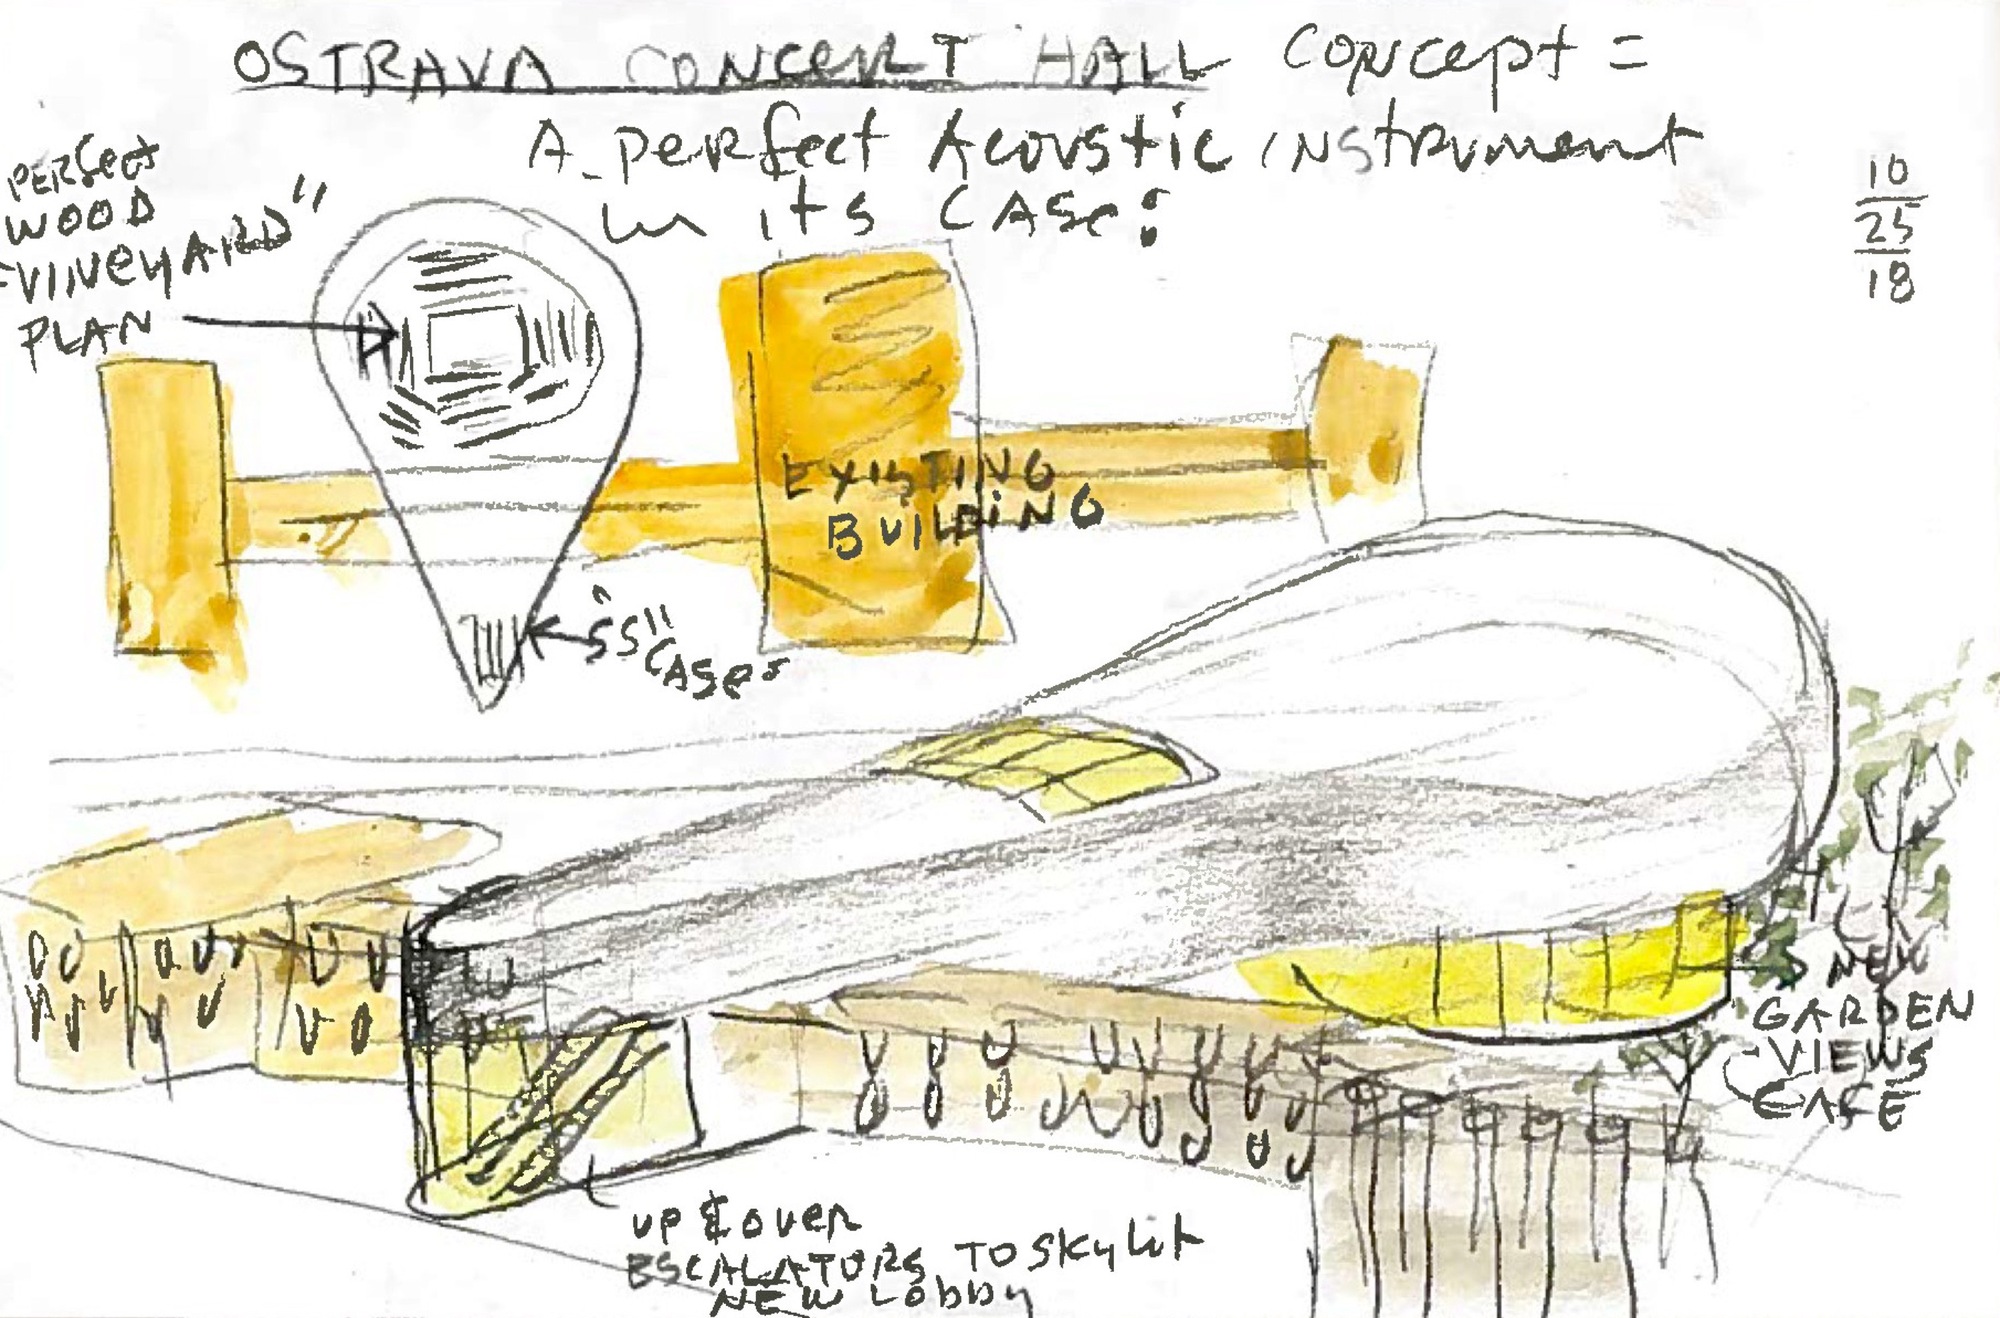 OSTRAVA CONCERT HALL Concept =
A perfect Acoustic instrument
in its CASE:
10
25
18
PERFECT
WOOD
"VINEYARD"
PLAN
EXISTING
BUILDING
"SS"
CASE
NEW
GARDEN
VIEWS
up & over
ESCALATORS TO SKYLIT
NEW LOBBY